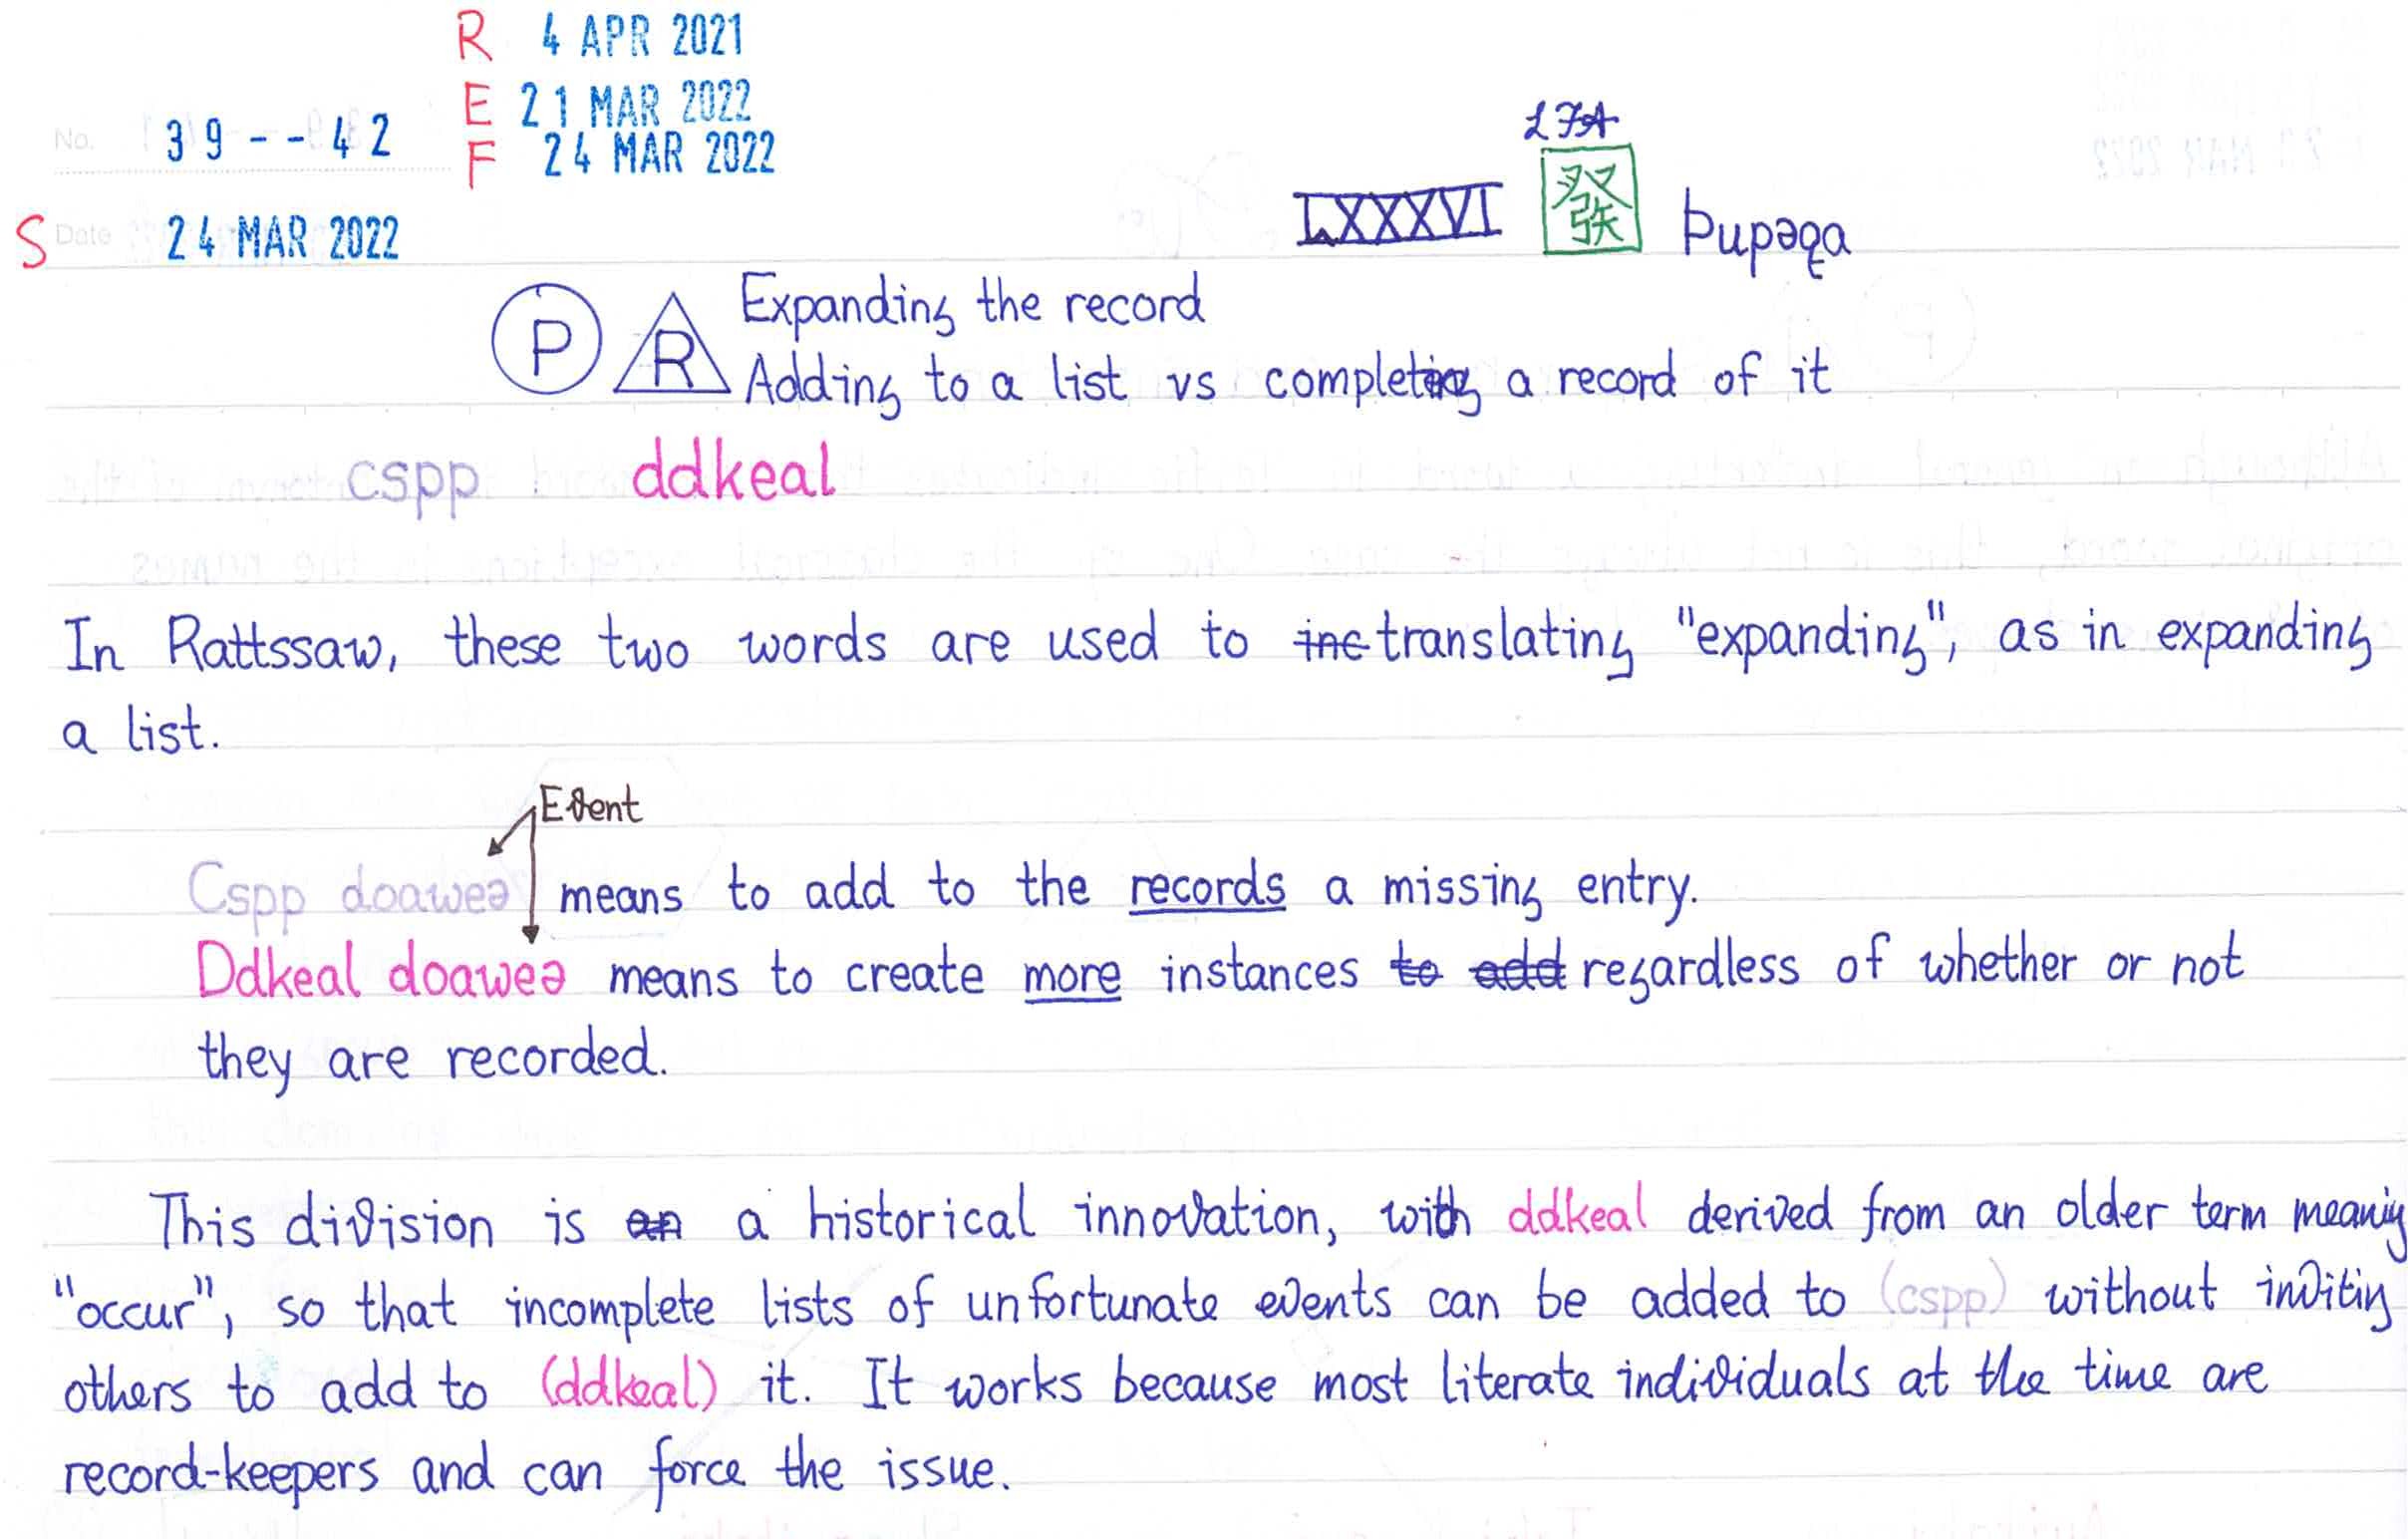 R 4 APR 2021
E 21 MAR 2022
No. 39--42 F 24 MAR 2022
S Date 24 MAR 2022
LXXXVI 發 Þupəqa
P R Expanding the record
Adding to a list vs completing a record of it
cspp ddkeal
In Rattssaw, these two words are used to inc translating "expanding", as in expanding
a list.
Event
Cspp doaweə means to add to the records a missing entry.
Ddkeal doaweə means to create more instances to add regardless of whether or not
they are recorded.
This division is an a historical innovation, with ddkeal derived from an older term meaning
"occur", so that incomplete lists of unfortunate events can be added to (cspp) without inviting
others to add to (ddkeal) it. It works because most literate individuals at the time are
record-keepers and can force the issue.